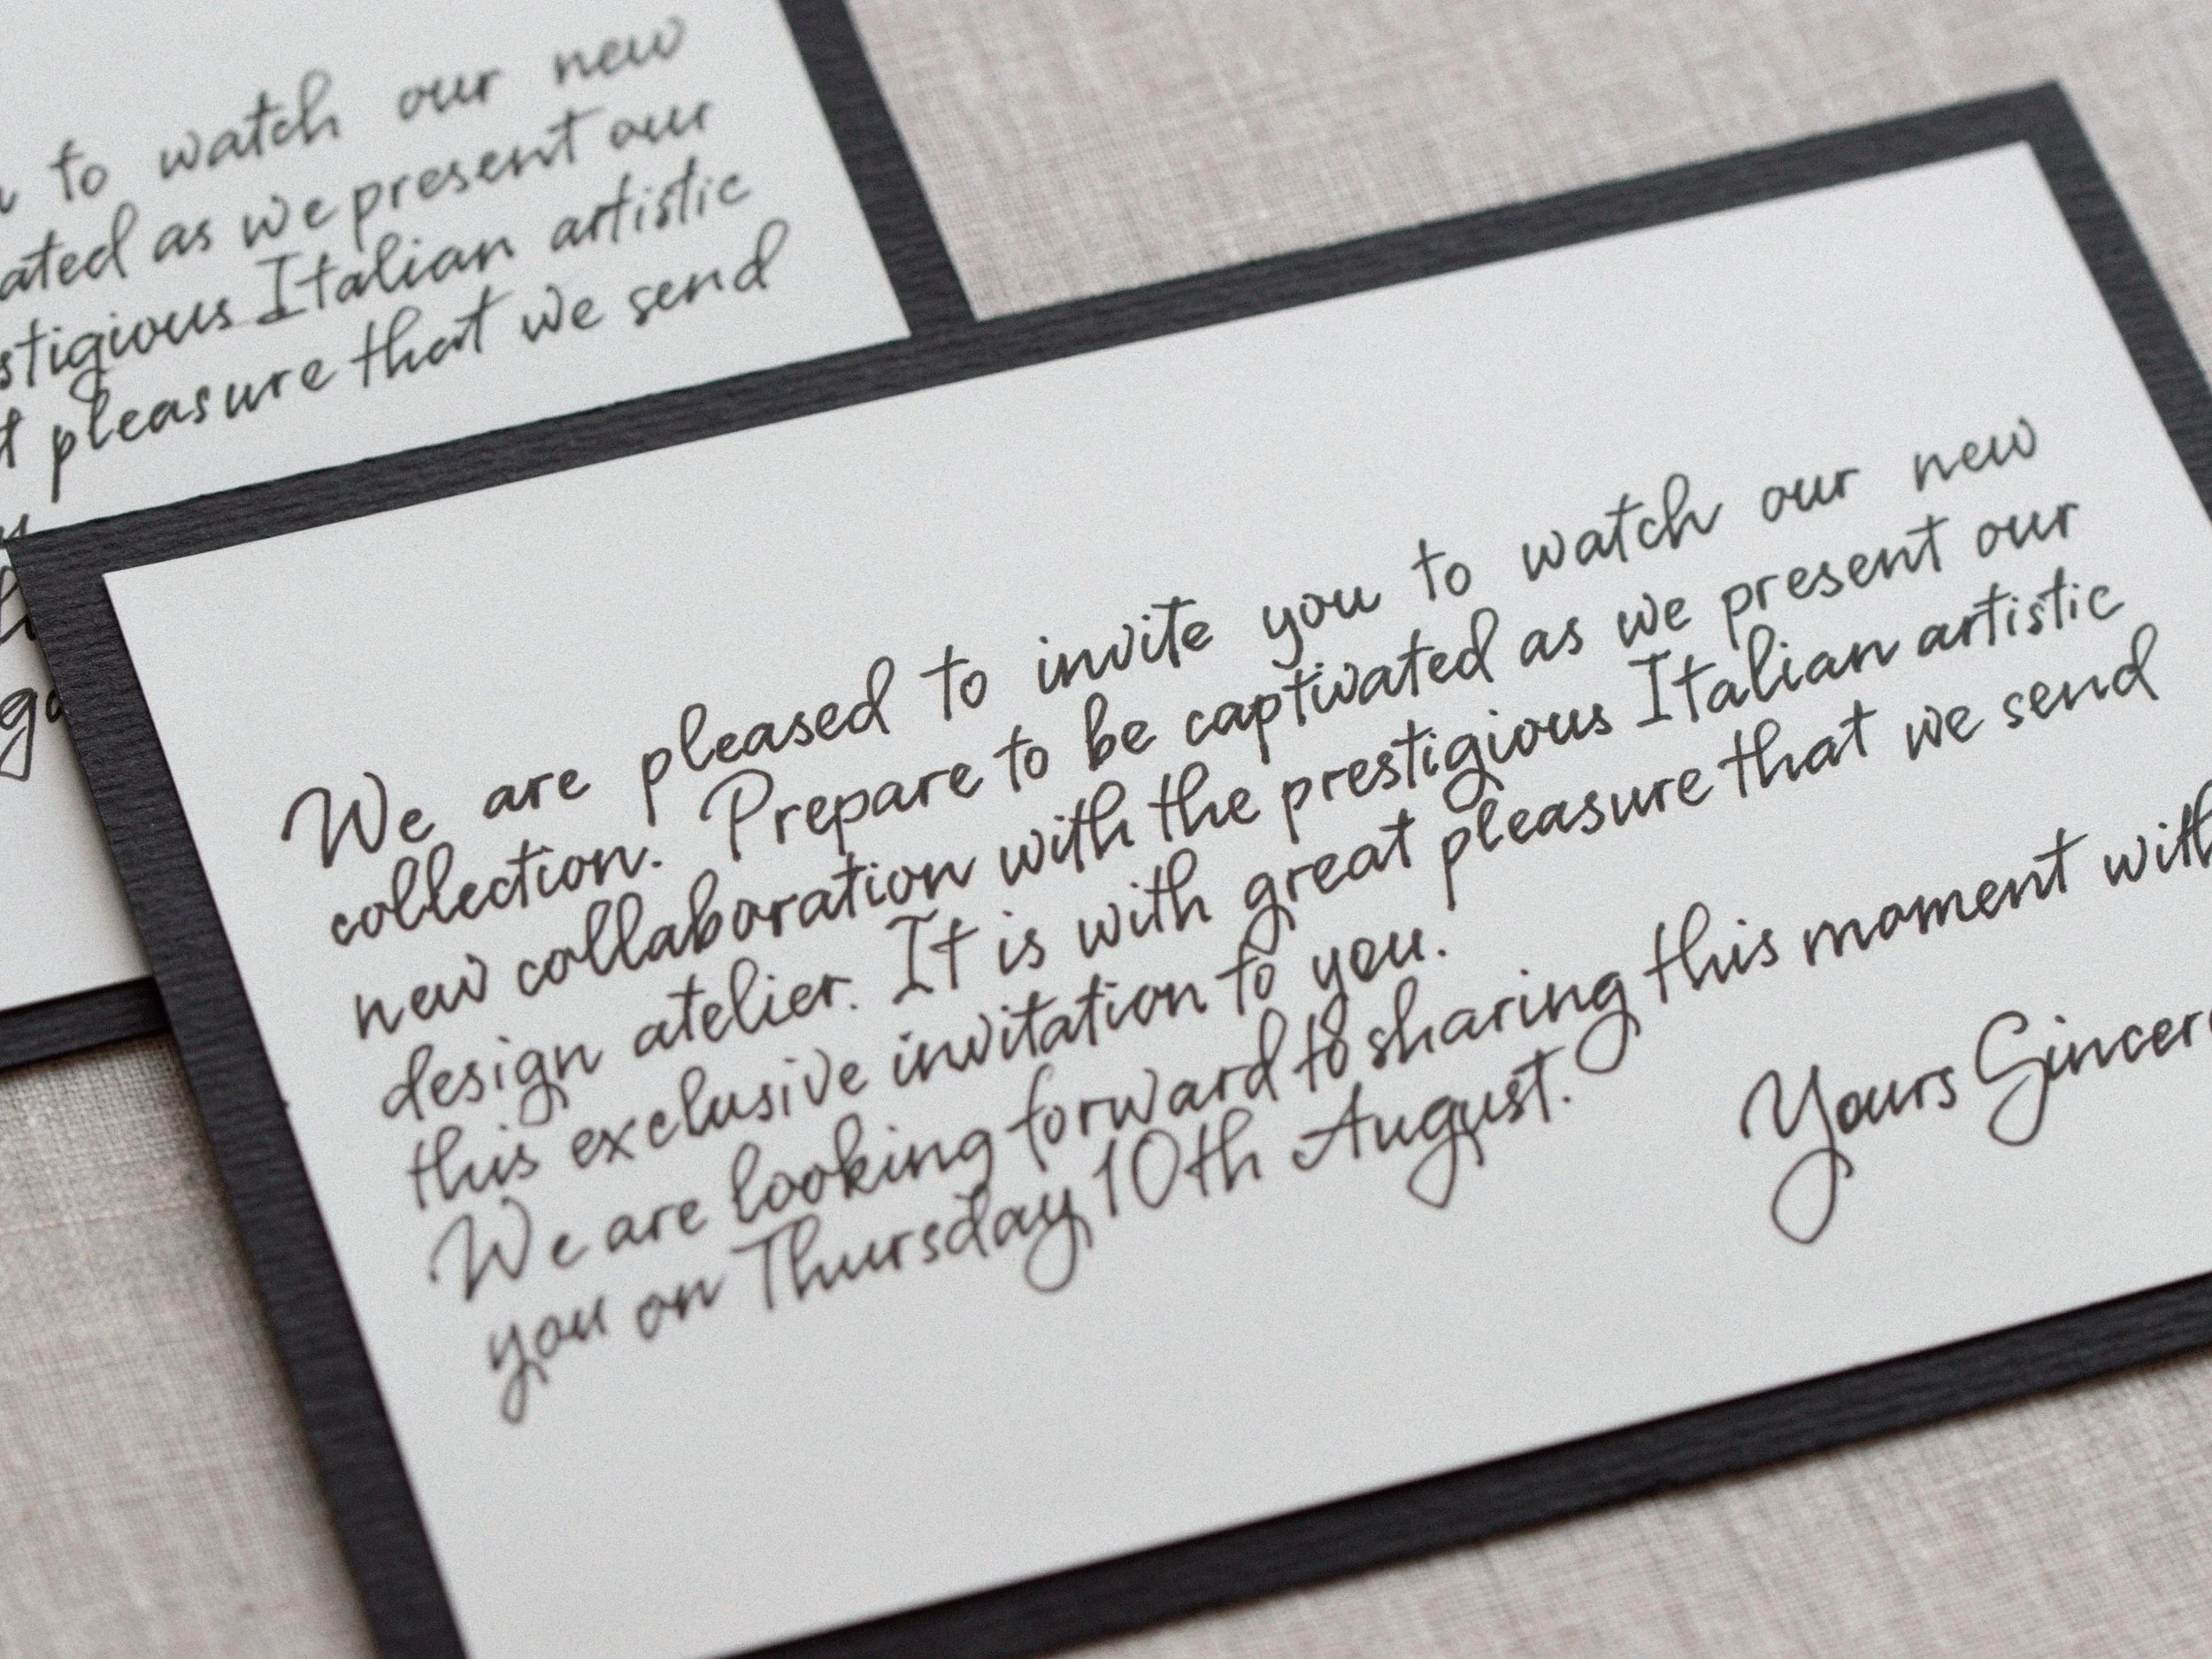 to watch our new
as we present our
Italian artistic
pleasure that we send
We are pleased to invite you to watch our new
collection. Prepare to be captivated as we present our
new collaboration with the prestigious Italian artistic
design atelier. It is with great pleasure that we send
this exclusive invitation to you.
We are looking forward to sharing this moment with
you on Thursday 10th August.
Yours